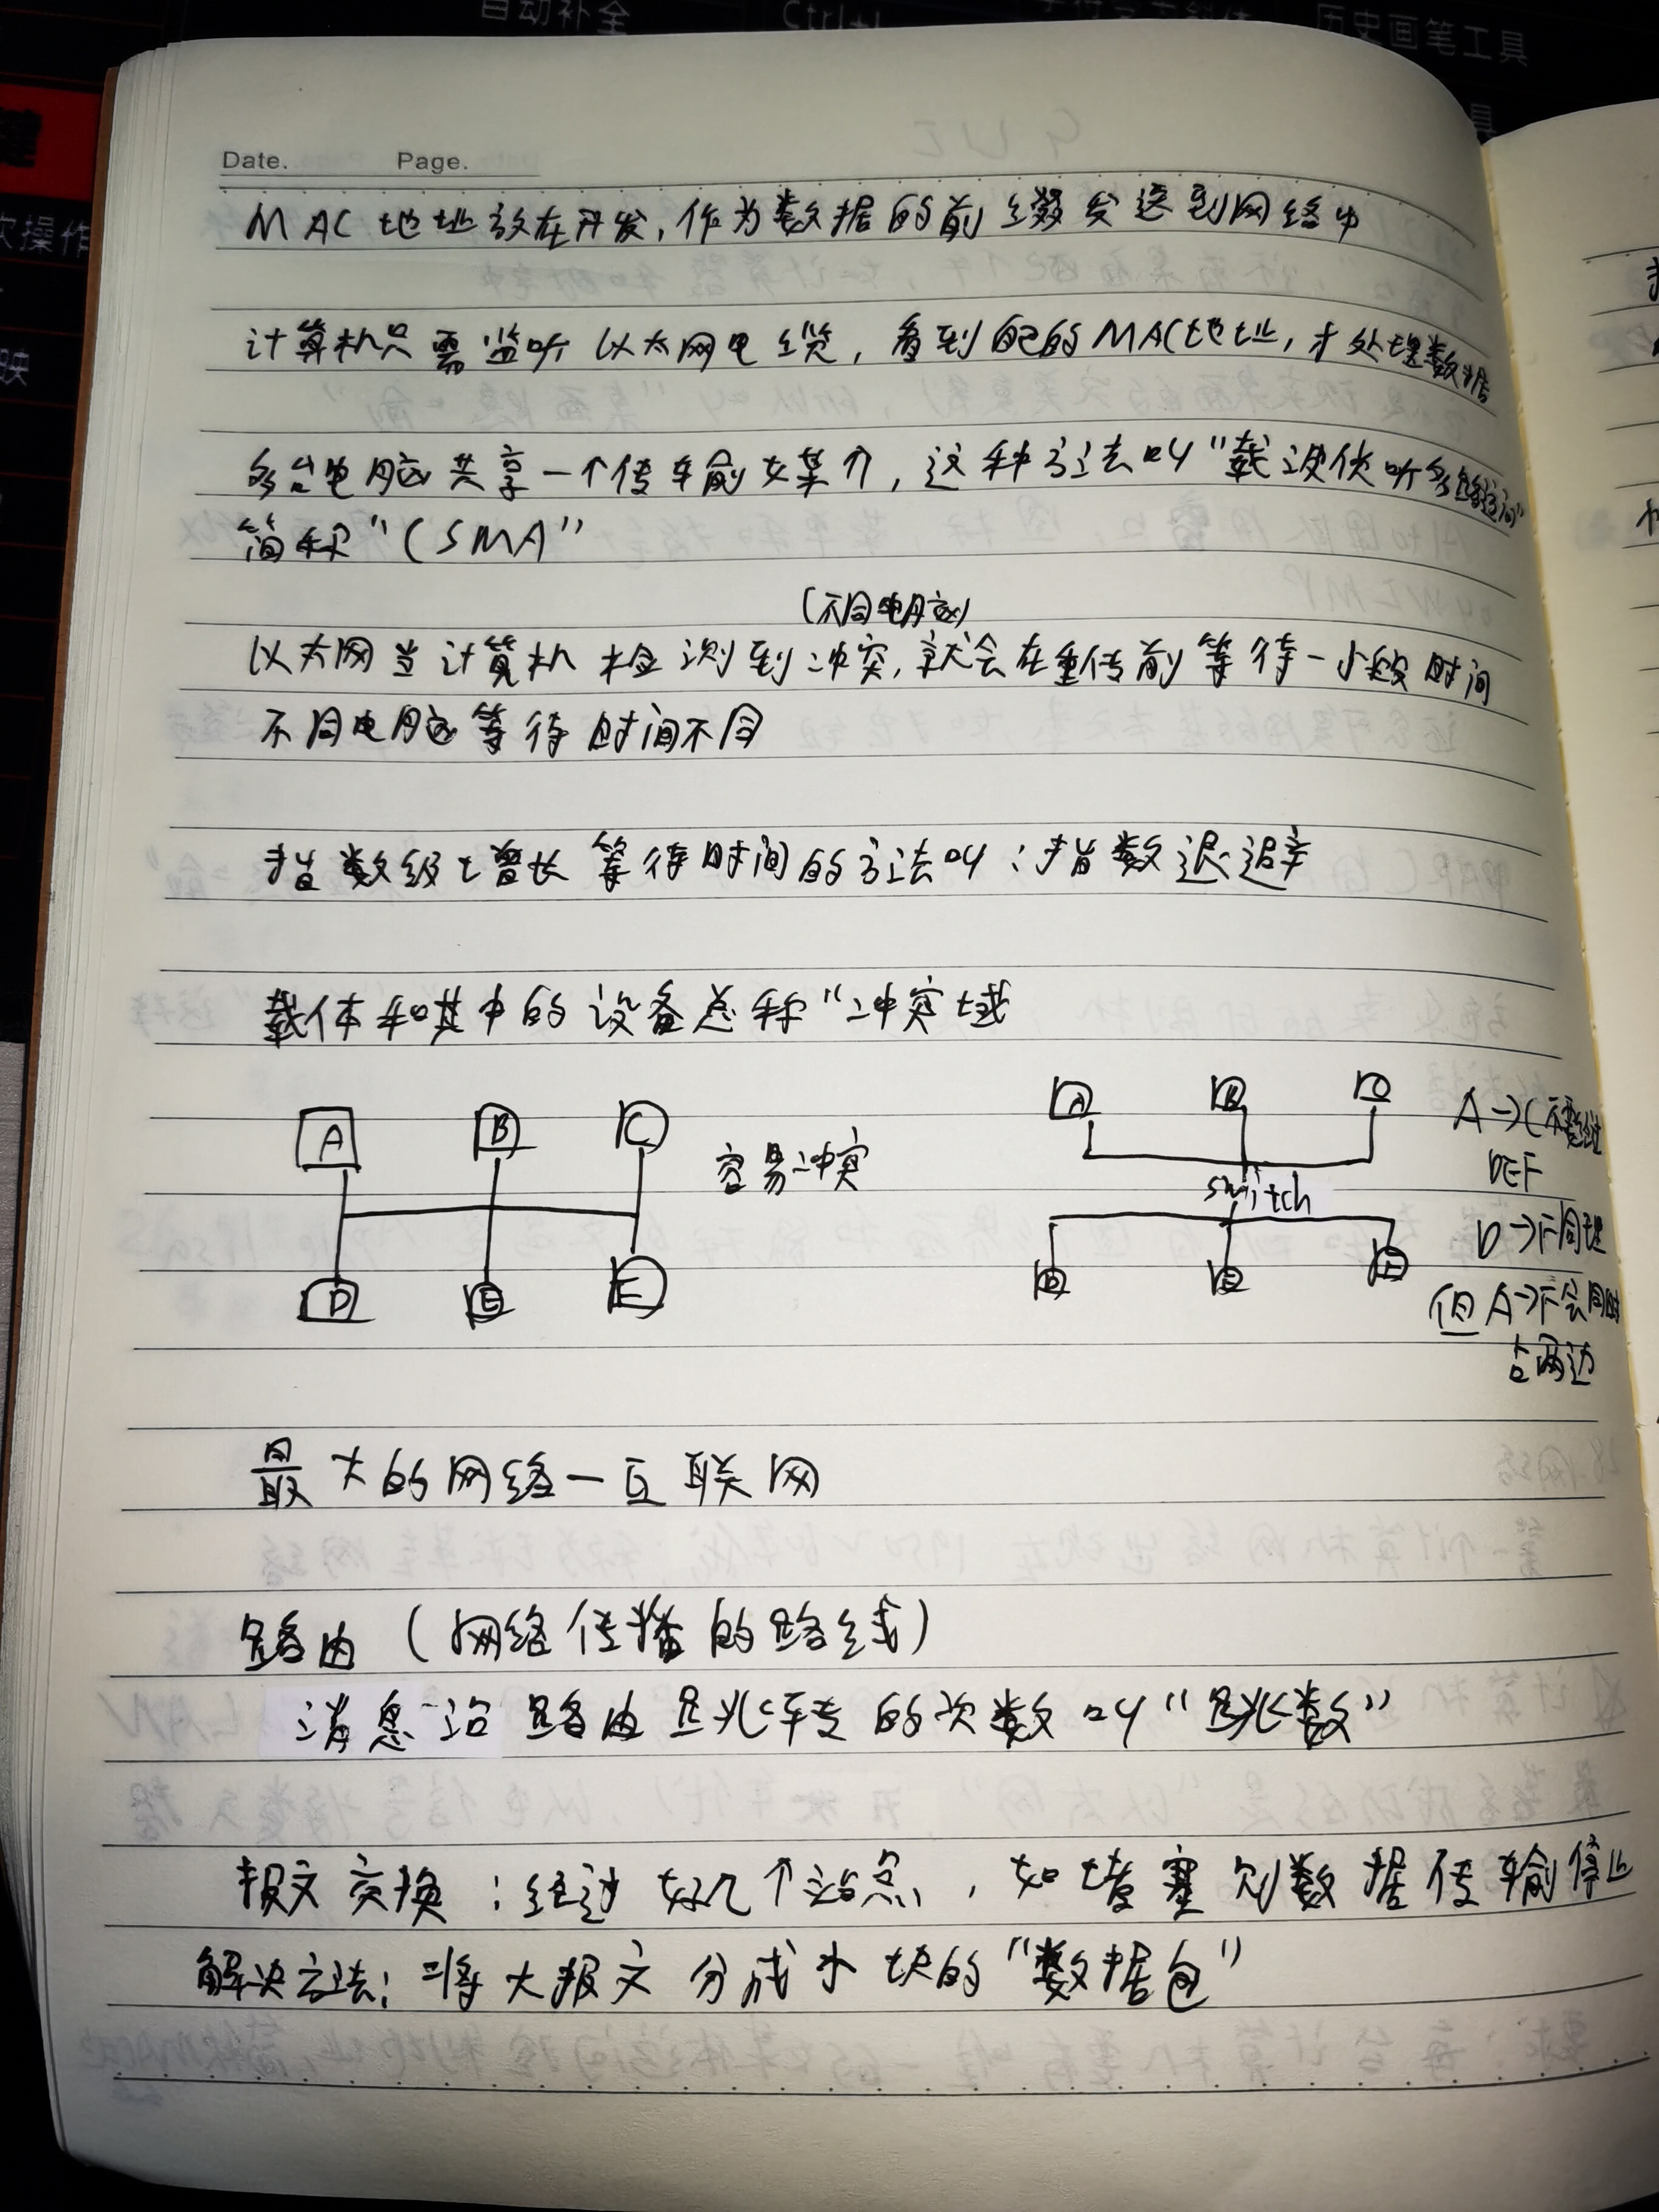 自动补全
Ctrl+
历史画笔工具
建
次操作
映
具
Date. Page.
MAC地址放在开发,作为数据的前缀发送到网络中
计算机只需监听以太网电缆,看到自己的MAC地址,才处理数据
多台电脑共享一个传输媒介,这种方法叫"载波侦听多路访问"
简称"CSMA"
(不同电脑)
以太网当计算机检测到冲突,就会在重传前等待一小段时间
不同电脑等待时间不同
指数级增长等待时间的方法叫:指数退避
载体和其中的设备总称"冲突域
A B C
容易冲突
D E E
A B C
switch
D E F
A→C不
DEF
D→F同理
但A→F会同时
占两边
最大的网络—互联网
路由(网络传播的路线)
消息沿路由跳转的次数叫"跳数"
报文交换:经过好几个站点,如堵塞则数据传输停止
解决方法:将大报文分成小块的"数据包"